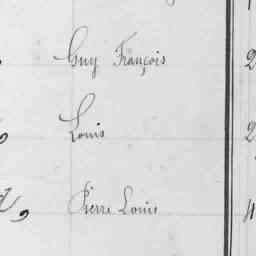 Guy François 2
, Louis 2
, Pierre Louis 4